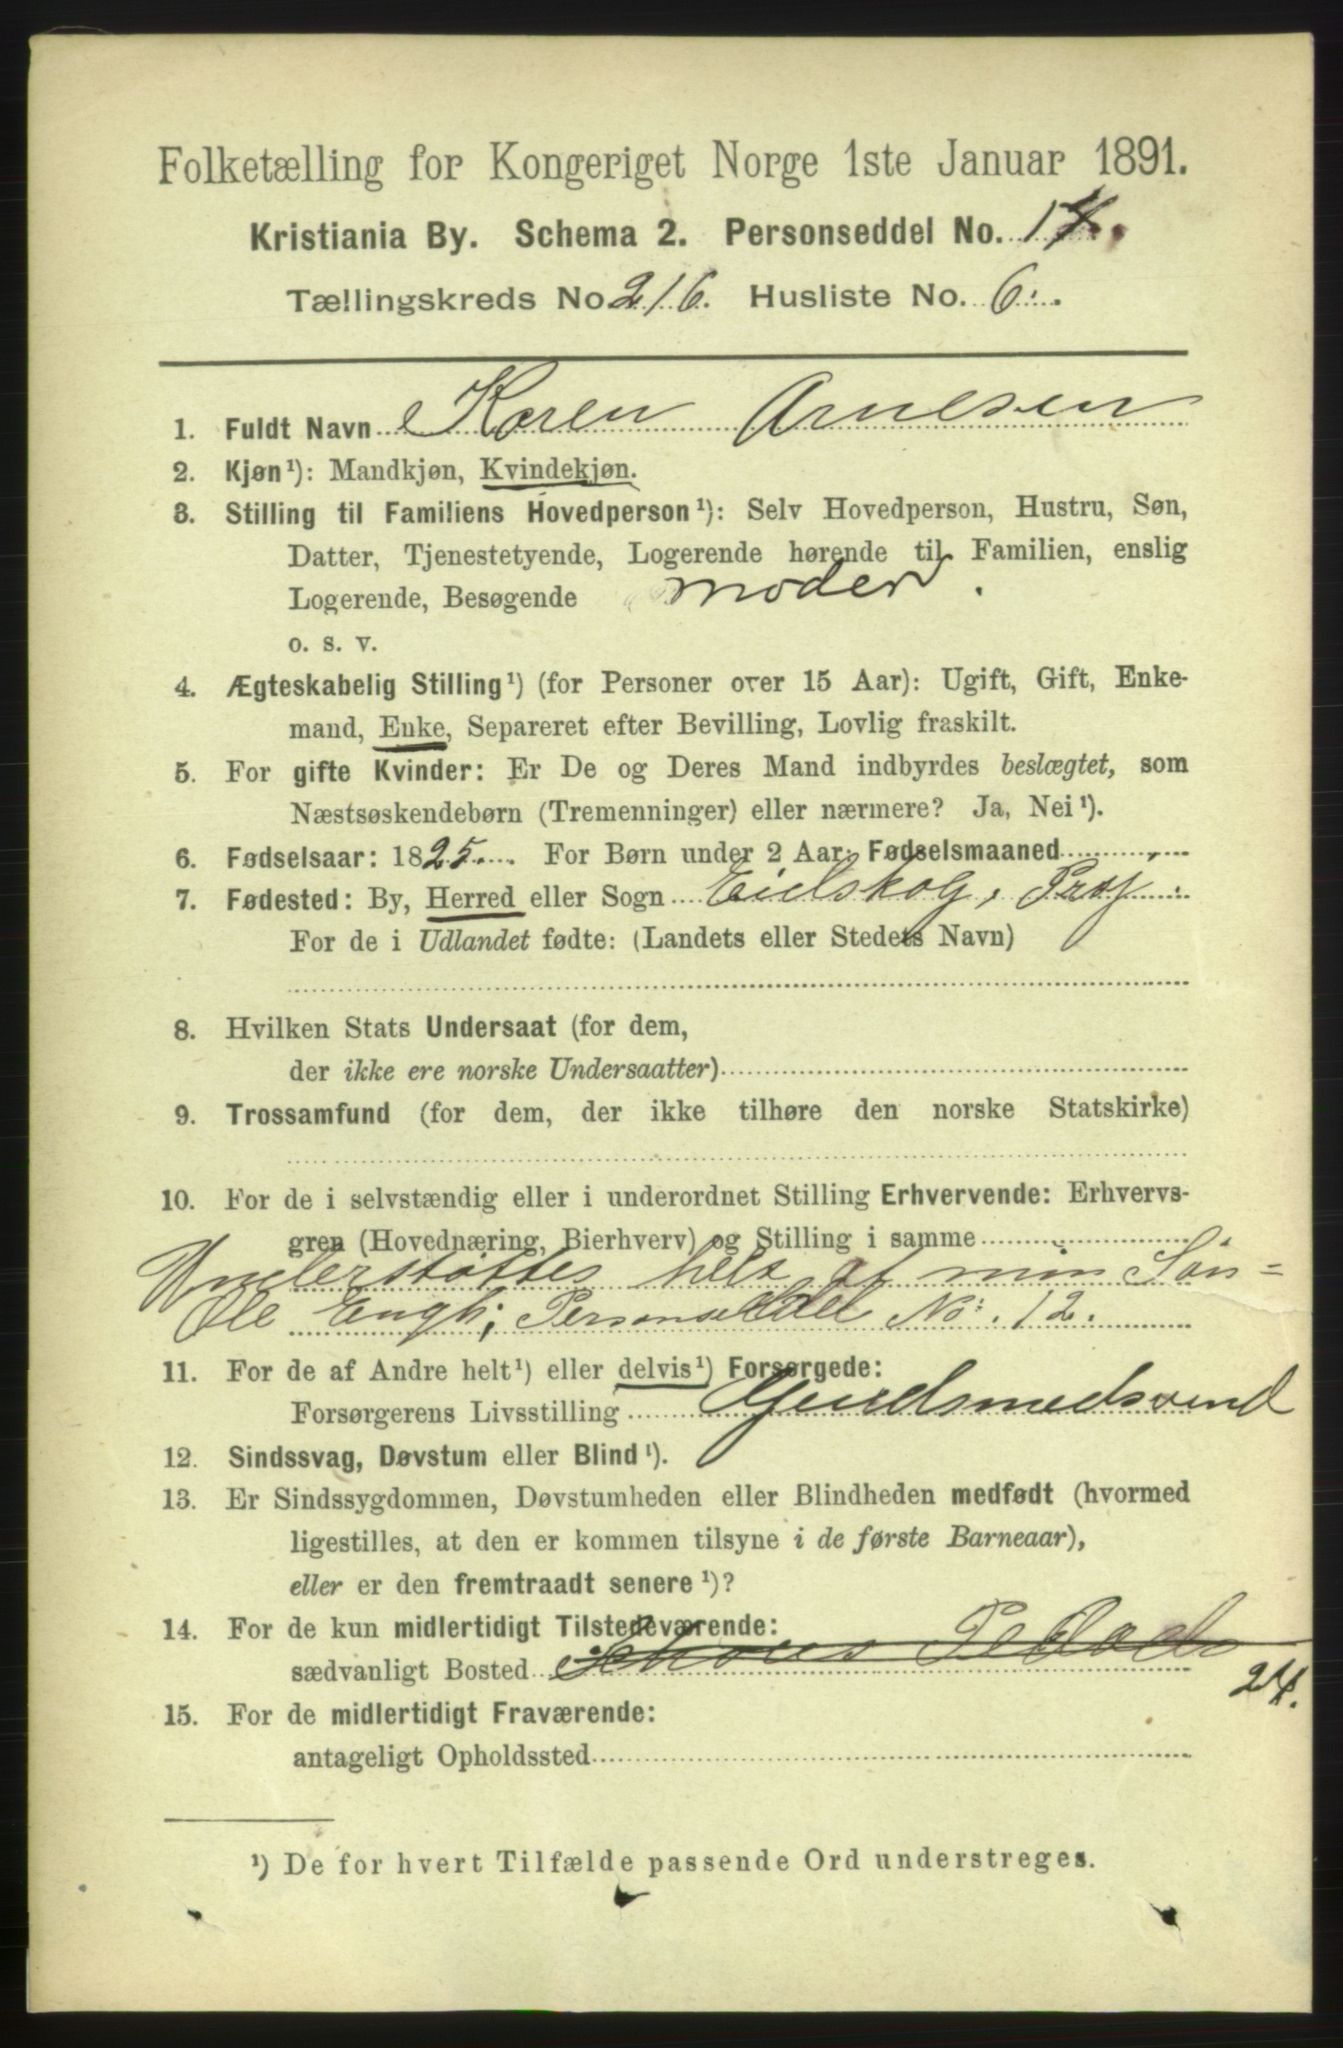 Folketælling for Kongeriget Norge 1ste Januar 1891.
Kristiania By. Schema 2. Personseddel No. 14.
Tællingskreds No 216. Husliste No. 6.
1. Fuldt Navn Karen Arnesen
2. Kjøn¹): Mandkjøn, Kvindekjøn.
3. Stilling til Familiens Hovedperson¹): Selv Hovedperson, Hustru, Søn,
Datter, Tjenestetyende, Logerende hørende til Familien, enslig
Logerende, Besøgende moder.
o. s. v.
4. Ægteskabelig Stilling¹) (for Personer over 15 Aar): Ugift, Gift, Enke-
mand, Enke, Separeret efter Bevilling, Lovlig fraskilt.
5. For gifte Kvinder: Er De og Deres Mand indbyrdes beslægtet, som
Næstsøskendebørn (Tremenninger) eller nærmere? Ja, Nei¹).
6. Fødselsaar: 1825. For Børn under 2 Aar: Fødselsmaaned
7. Fødested: By, Herred eller Sogn Eidskog, Præj.
For de i Udlandet fødte: (Landets eller Stedets Navn)
8. Hvilken Stats Undersaat (for dem,
der ikke ere norske Undersaatter)
9. Trossamfund (for dem, der ikke tilhøre den norske Statskirke)
10. For de i selvstændig eller i underordnet Stilling Erhvervende: Erhvervs-
gren (Hovednæring, Bierhverv) og Stilling i samme
Understøttes helt af min Søn
Ole Engh; Personseddel No: 12.
11. For de af Andre helt¹) eller delvis¹) Forsørgede:
Forsørgerens Livsstilling Guldsmedsvend
12. Sindssvag, Døvstum eller Blind¹).
13. Er Sindssygdommen, Døvstumheden eller Blindheden medfødt (hvormed
ligestilles, at den er kommen tilsyne i de første Barneaar),
eller er den fremtraadt senere¹)?
14. For de kun midlertidigt Tilstedeværende:
sædvanligt Bosted Schous
24.
15. For de midlertidigt Fraværende:
antageligt Opholdssted
¹) De for hvert Tilfælde passende Ord understreges.